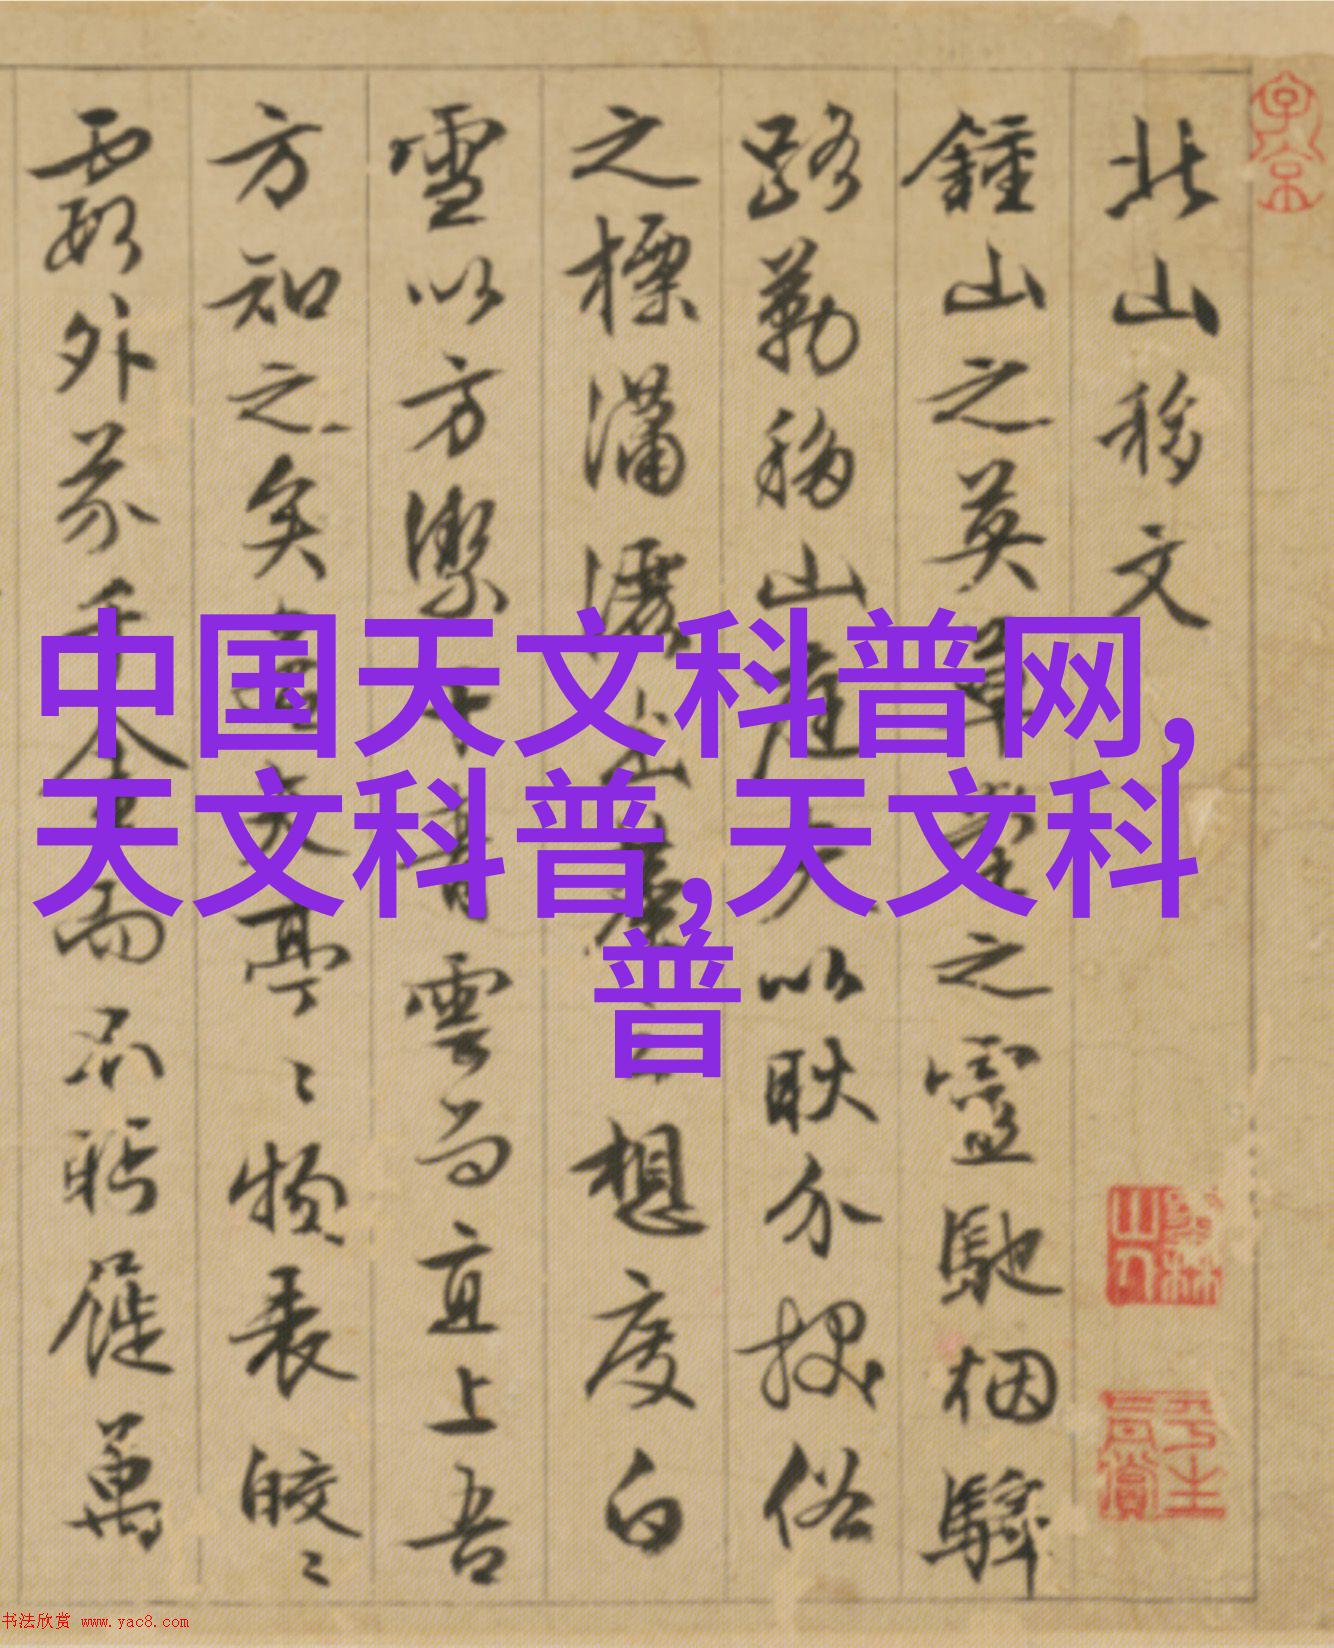 中国天文科普网,
天文科普,天文科
普
北山移文
鍾山之英草堂之靈馳烟驛
路勒移山庭夫以耿介拔俗
之標瀟灑出塵之想度白
雪以方潔干青雲而直上吾
方知之矣若其亭〻物表皎〻
霞外芥千金而不眄屣萬
子京
平生真賞
书法欣赏 www.yac8.com